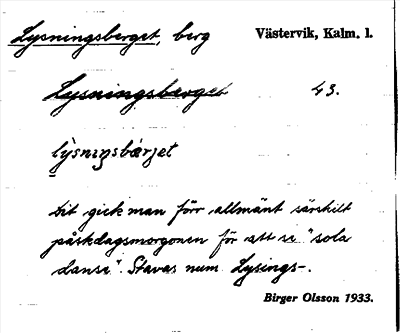 Lysningsberget, berg Västervik, Kalm. l.
Lysningsberget 43.
lỳsnıŋsbærjet
dit gick man förr allmänt särskilt
påskdagsmorgonen för att se "sola
dansa". Stavas num Lysings-.
Birger Olsson 1933.